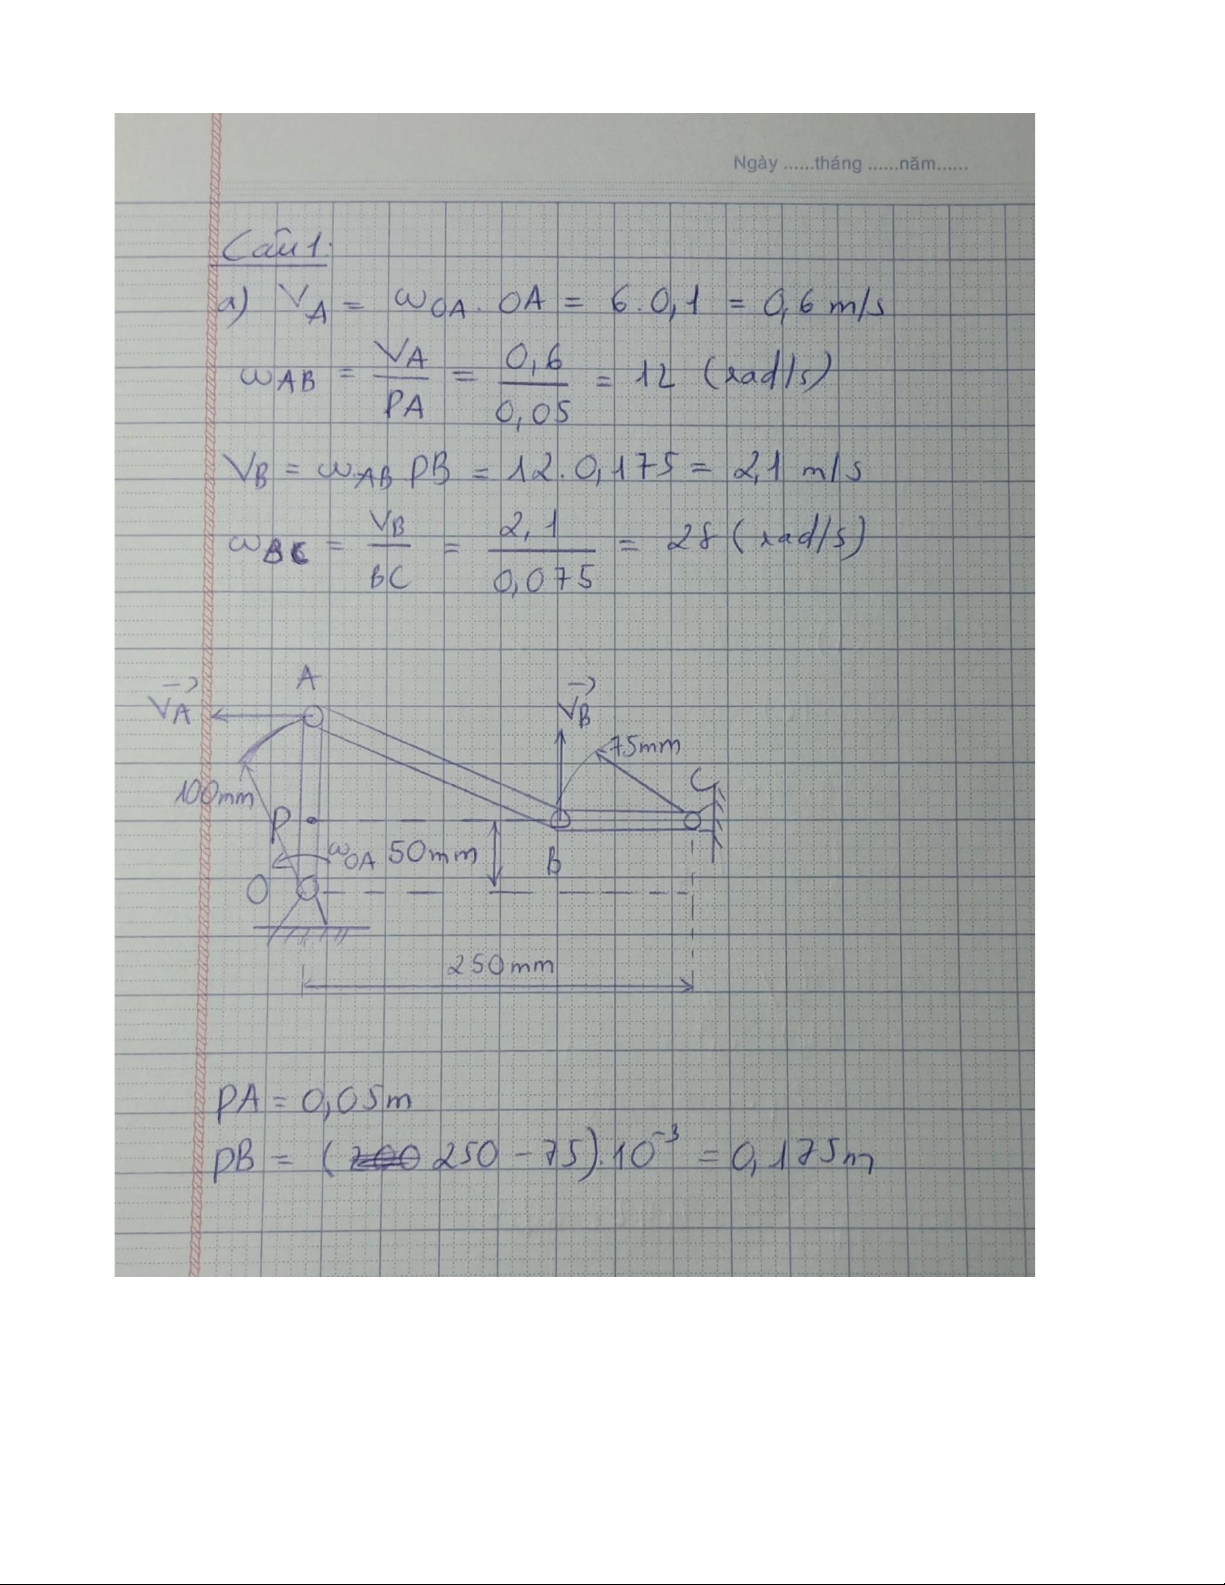 Ngày ......tháng ......năm......
Câu 1:
a) VA = ωOA . OA = 6 . 0,1 = 0,6 m/s
ωAB = VA / PA = 0,6 / 0,05 = 12 (rad/s)
VB = ωAB PB = 12 . 0,175 = 2,1 m/s
ωBC = VB / BC = 2,1 / 0,075 = 28 (rad/s)
A
VA
VB
75mm
C
100mm
P
ωOA 50mm
B
O
250mm
PA = 0,05m
PB = (250 - 75).10⁻³ = 0,175m